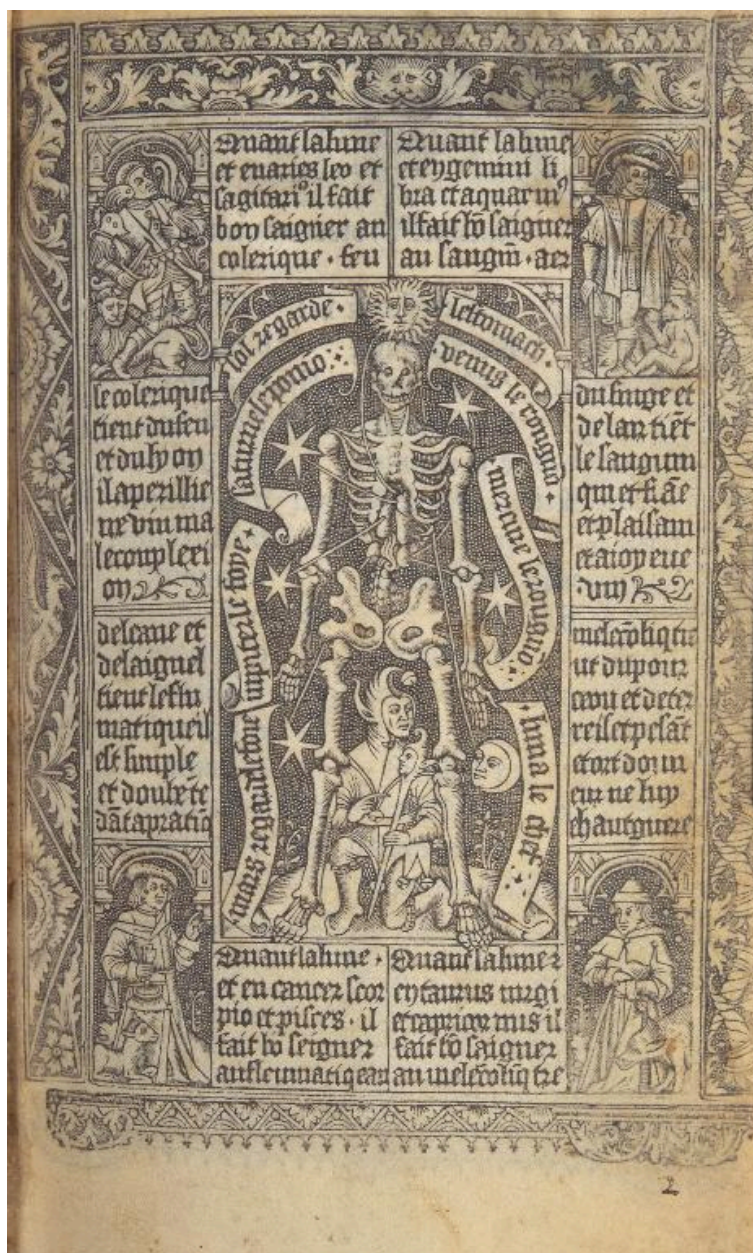 Quant la lune
et en aries leo et
sagitari⁹ il fait
bon saignier au
colerique · feu
Quant la lune
et en gemini li
bra et aquari⁹
il fait bõ saigner
au sanguī · aer
sol regarde · lestomach ·
saturne le pomō :·
venus le rongnō ·
jupiter le foye ·
mercure le rongnō :
mars regarde le foye ·
luna le chef :·
le colerique
tient du feu
et du lyon
il a perillie
ne vin ma
le complexi
on
du singe et
de lair tiēt
le sanguin
qui et frāc
et plaisant
et a joyeux
vin
de leaue et
de laignel
tient le flu
matique il
est simple
et double
melēcoliq ti
ent du pour
ceau et de ter
re il et pesāt
et ort don
eur ne luy
chault guere
Quant la lune ·
et en cancer scor
pio et pisces · il
fait bō seigner
au fleumatiq eau
Quant la lune
en taurus virgi
et capricornus il
fait bō saigner
au melēcoliq tre
2